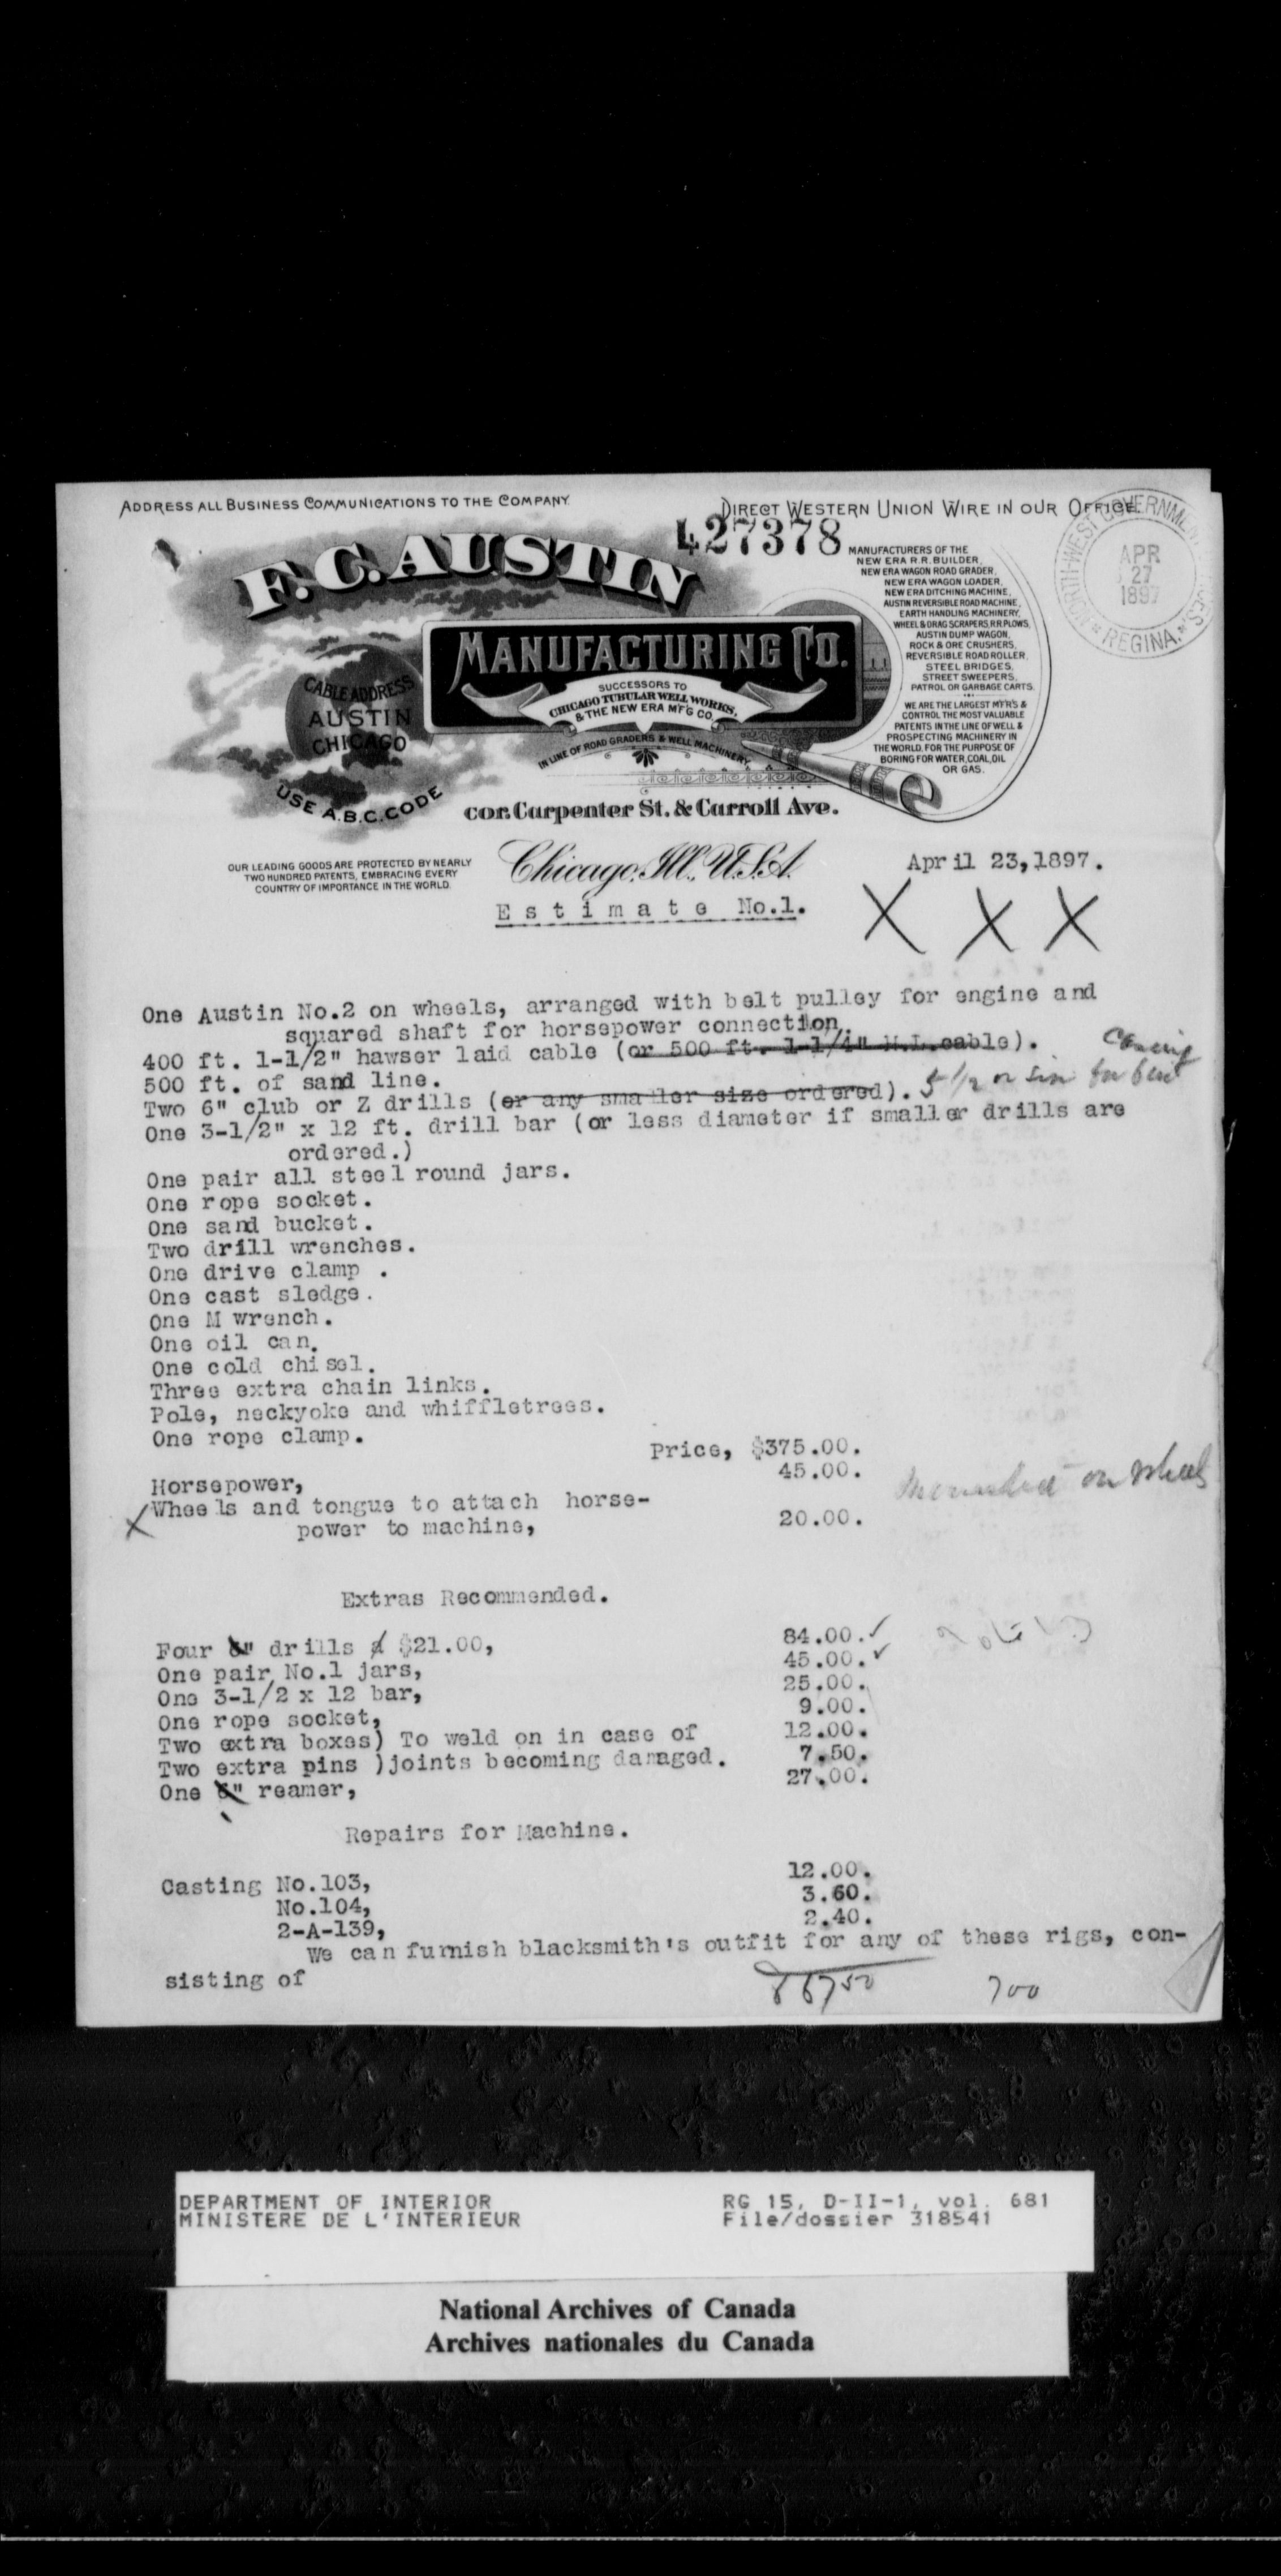 ADDRESS ALL BUSINESS COMMUNICATIONS TO THE COMPANY.
DIRECT WESTERN UNION WIRE IN OUR OFFICE
427378
NORTH-WEST GOVERNMENT
APR
27
1897
REGINA.
F.C. AUSTIN
MANUFACTURING CO.
SUCCESSORS TO
CHICAGO TUBULAR WELL WORKS,
& THE NEW ERA MF'G CO.
IN LINE OF ROAD GRADERS & WELL MACHINERY
CABLE ADDRESS
AUSTIN
CHICAGO
USE A.B.C. CODE
MANUFACTURERS OF THE
NEW ERA R.R. BUILDER,
NEW ERA WAGON ROAD GRADER,
NEW ERA WAGON LOADER,
NEW ERA DITCHING MACHINE,
AUSTIN REVERSIBLE ROAD MACHINE,
EARTH HANDLING MACHINERY,
WHEEL & DRAG SCRAPERS, R.R. PLOWS,
AUSTIN DUMP WAGON,
ROCK & ORE CRUSHERS,
REVERSIBLE ROAD ROLLER,
STEEL BRIDGES,
STREET SWEEPERS,
PATROL OR GARBAGE CARTS.
WE ARE THE LARGEST MF'R'S &
CONTROL THE MOST VALUABLE
PATENTS IN THE LINE OF WELL &
PROSPECTING MACHINERY IN
THE WORLD, FOR THE PURPOSE OF
BORING FOR WATER, COAL, OIL
OR GAS.
cor. Carpenter St. & Carroll Ave.
OUR LEADING GOODS ARE PROTECTED BY NEARLY
TWO HUNDRED PATENTS, EMBRACING EVERY
COUNTRY OF IMPORTANCE IN THE WORLD.
Chicago, Ill., U.S.A.
April 23, 1897.
Estimate No.1.
X X X
One Austin No.2 on wheels, arranged with belt pulley for engine and
squared shaft for horsepower connection.
400 ft. 1-1/2" hawser laid cable (or 500 ft. 1-1/4" H.L.cable).
500 ft. of sand line.
Casing
Two 6" club or Z drills (or any smaller size ordered). 5 1/2 or six
One 3-1/2" x 12 ft. drill bar (or less diameter if smaller drills are
ordered.)
One pair all steel round jars.
One rope socket.
One sand bucket.
Two drill wrenches.
One drive clamp .
One cast sledge.
One M wrench.
One oil can.
One cold chisel.
Three extra chain links.
Pole, neckyoke and whiffletrees.
One rope clamp.
Price, $375.00.
Horsepower, 45.00.
X Wheels and tongue to attach horse-
power to machine, 20.00.
mounted on wheels
Extras Recommended.
Four 6" drills @ $21.00, 84.00. ✓
One pair No.1 jars, 45.00. ✓
One 3-1/2 x 12 bar, 25.00.
One rope socket, 9.00.
Two extra boxes) To weld on in case of 12.00.
Two extra pins )joints becoming damaged. 7.50.
One 6" reamer, 27.00.
Repairs for Machine.
Casting No.103, 12.00.
No.104, 3.60.
2-A-139, 2.40.
We can furnish blacksmith's outfit for any of these rigs, con-
sisting of
86750 700
DEPARTMENT OF INTERIOR
MINISTERE DE L'INTERIEUR
RG 15, D-II-1, vol. 681
File/dossier 318541
National Archives of Canada
Archives nationales du Canada